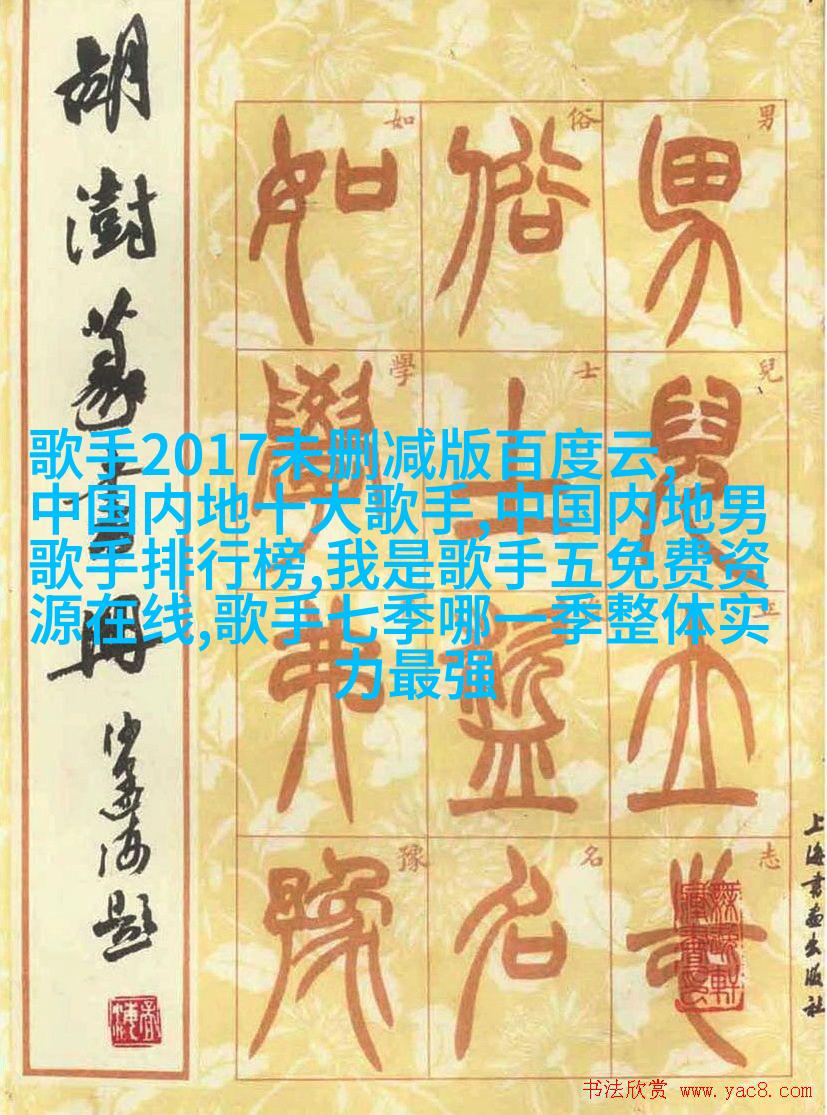 胡澍篆書冊
沙孟海題
男兒立志
俗士盜名
如學弗豫
男
兒
志
俗
士
名
如
學
豫
歌手2017未删减版百度云,
中国内地十大歌手,中国内地男
歌手排行榜,我是歌手五免费资
源在线,歌手七季哪一季整体实
力最强
上海書畫出版社
书法欣赏 www.yac8.com